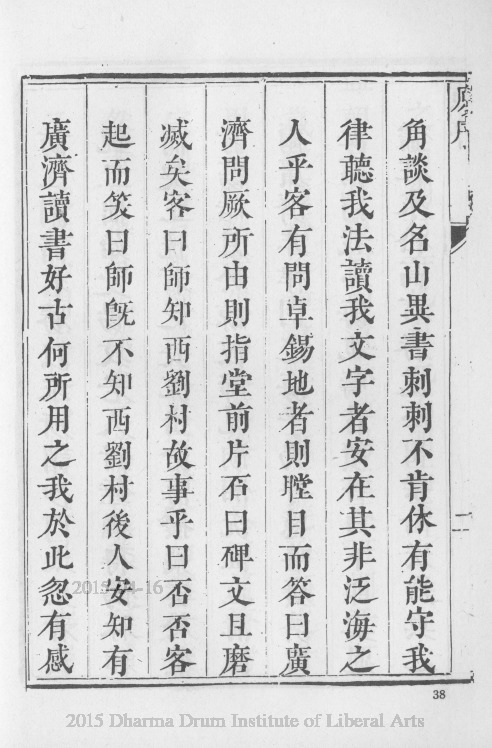 角談及名山異書刺刺不肯休有能守我
律聽我法讀我文字者安在其非泛海之
人乎客有問卓錫地者則瞠目而答曰廣
濟問厥所由則指堂前片石曰碑文且磨
滅矣客曰師知西劉村故事乎曰否否客
起而笑曰師既不知西劉村後人安知有
廣濟讀書好古何所用之我於此忽有感
38
2015 Dharma Drum Institute of Liberal Arts